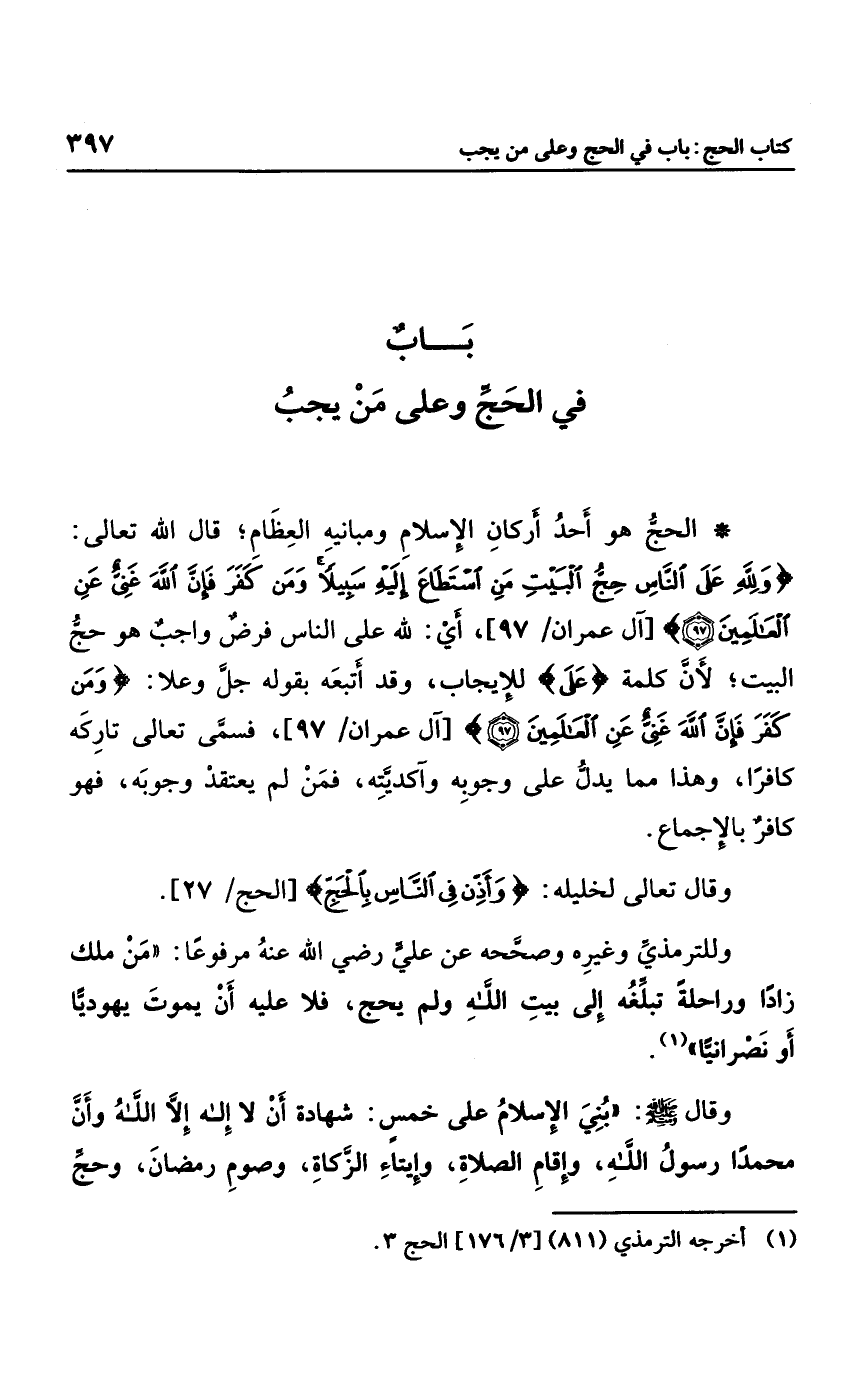 كتاب الحج : باب في الحج وعلى من يجب ٣٩٧
بَـــابٌ
في الحَجِّ وعلى مَنْ يجبُ
* الحجُّ هو أَحدُ أَركانِ الإِسلامِ ومبانيهِ العِظَامِ؛ قال الله تعالى:
﴿وَلِلَّهِ عَلَى ٱلنَّاسِ حِجُّ ٱلْبَيْتِ مَنِ ٱسْتَطَاعَ إِلَيْهِ سَبِيلًاۚ وَمَن كَفَرَ فَإِنَّ ٱللَّهَ غَنِيٌّ عَنِ
ٱلْعَٰلَمِينَ ۝٩٧﴾ [آل عمران/ ٩٧]، أَيْ: لله على الناس فرضٌ واجبٌ هو حجُّ
البيت؛ لأَنَّ كلمة ﴿عَلَى﴾ للإِيجاب، وقد أَتبعَه بقوله جلَّ وعلا: ﴿وَمَن
كَفَرَ فَإِنَّ ٱللَّهَ غَنِيٌّ عَنِ ٱلْعَٰلَمِينَ ۝٩٧﴾ [آل عمران/ ٩٧]، فسمَّى تعالى تارِكَه
كافرًا، وهذا مما يدلُّ على وجوبِه وآكديَّتِه، فمَنْ لم يعتقدْ وجوبَه، فهو
كافرٌ بالإِجماع.
وقال تعالى لخليله: ﴿وَأَذِّن فِي ٱلنَّاسِ بِٱلْحَجِّ﴾ [الحج/ ٢٧].
وللترمذيِّ وغيرِه وصحَّحه عن عليٍّ رضي الله عنهُ مرفوعًا: «مَنْ ملك
زادًا وراحلةً تبلِّغُه إِلى بيتِ اللَّـٰهِ ولم يحج، فلا عليه أَنْ يموتَ يهوديًّا
أَو نَصْرانيًّا»(١).
وقال ﷺ: «بُنِيَ الإِسلامُ على خمسٍ: شهادة أَنْ لا إِلـٰه إِلاَّ اللَّـٰهُ وأَنَّ
محمدًا رسولُ اللَّـٰهِ، وإِقامِ الصلاةِ، وإِيتاءِ الزَّكاةِ، وصومِ رمضانَ، وحجِّ
(١) أخرجه الترمذي (٨١١) [٣/ ١٧٦] الحج ٣.